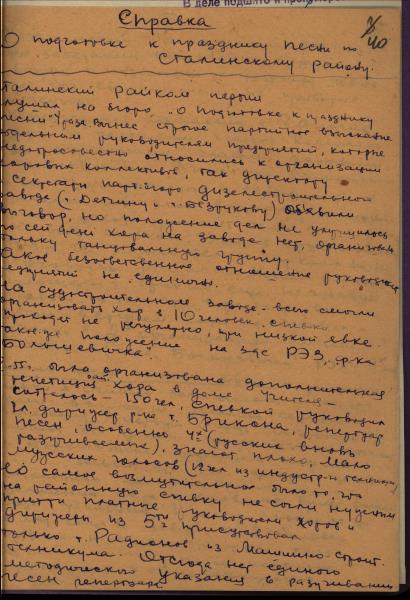 В деле подшито и пронумер
40
Справка
О подготовке к празднику песни по
Сталинскому району.
Сталинский райком партии
слушал на бюро "О подготовке к празднику
песни" 4 раза. Вынес строгие партийное взыскание
отдельным руководителям предприятий, которые
недобросовестно относились к организации
хоровых коллективов, так директору
и секретарю парт-бюро дизелестроительного
завода (т. и т. Безрукову) объявили
выговор, но положение дел не улучшилось
по сей день хора на заводе нет, организовали
только танцевальную группу.
Такое безответственное отношение руководителей
предприятий не единично.
На судостроительном заводе всего смогли
организовать хор в 10 человек, спевки
проходят не регулярно, при низкой явке.
Такое же положение на з-де РЭЗ, ф-ка
"Большевичка".
была организована дополнительная
репетиция хора в доме Учителя -
собралось - 150 чел, спевкой руководил
гл. дирижер р-на т. Брикона, репертуар
песен, особенно 4х (русских вновь
разучиваемых), знают плохо, мало
мужских голосов (12 чел из индустр-го техникума)
Но самое возмутительное было то, что
на районную спевку не сочли нужным
придти платные руководители хоров и
дирижеры из 5ти присутствовал
только т. Радионов из Машино-строит.
техникума. Отсюда нет единого
методического указания в разучивании
песен репертуара.